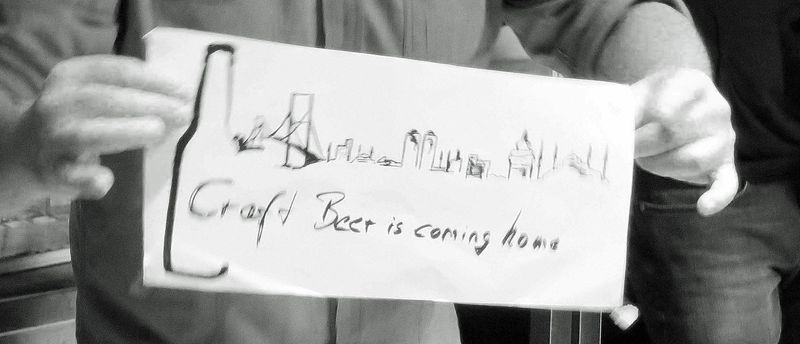 Craft Beer is coming home